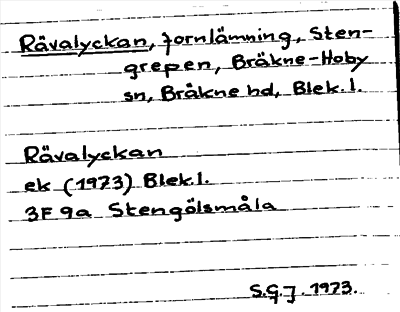 Rävalyckan, fornlämning, Sten-
grepen, Bräkne-Hoby
sn, Bräkne hd, Blek.l.
Rävalyckan
ek (1973) Blek.l.
3F 9a Stengölsmåla
S.G.J. 1973.